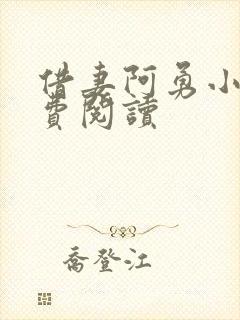 借妻阿勇小
費閱讀
喬登江